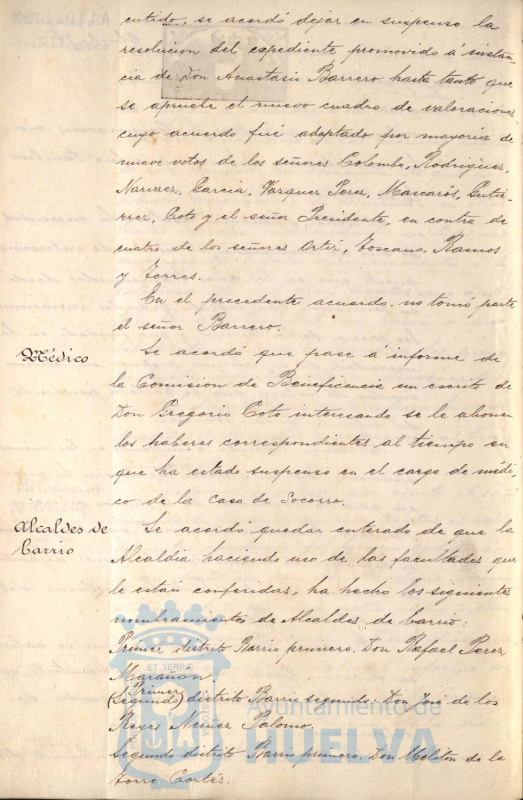 cutido, se acordó dejar en suspenso la
resolucion del expediente promovido á instan-
cia de Don Anastasio Barrero hasta tanto que
se apruebe el nuevo cuadro de valoraciones
cuyo acuerdo fué adoptado por mayoria de
nueve votos de los señores Colombo, Rodriguez,
Narvaez, Garcia, Vazquez Perez, Mascarós, Gutie-
rrez, Coto y el señor Presidente, en contra de
cuatro de los señores Ortiz, Toscano, Ramos
y Torres.
En el precedente acuerdo no tomó parte
el señor Barrero.
Médico
Se acordó que pase á informe de
la Comision de Beneficencia un escrito de
Don Gregorio Coto interesando se le abonen
los haberes correspondientes al tiempo en
que ha estado suspenso en el cargo de médi-
co de la Casa de Socorro.
Alcaldes de
barrio
Se acordó quedar enterado de que la
Alcaldia haciendo uso de las facultades que
le están conferidas, ha hecho los siguientes
nombramientos de Alcaldes de barrio:
Primer distrito Barrio primero. Don Rafael Perez
Marañon.
Primer
(Segundo) distrito Barrio segundo. Don José de los
Reyes Nuñez Palomo.
Segundo distrito Barrio primero. Don Meliton de la
Torre Cortés.
Ayuntamiento de
HUELVA